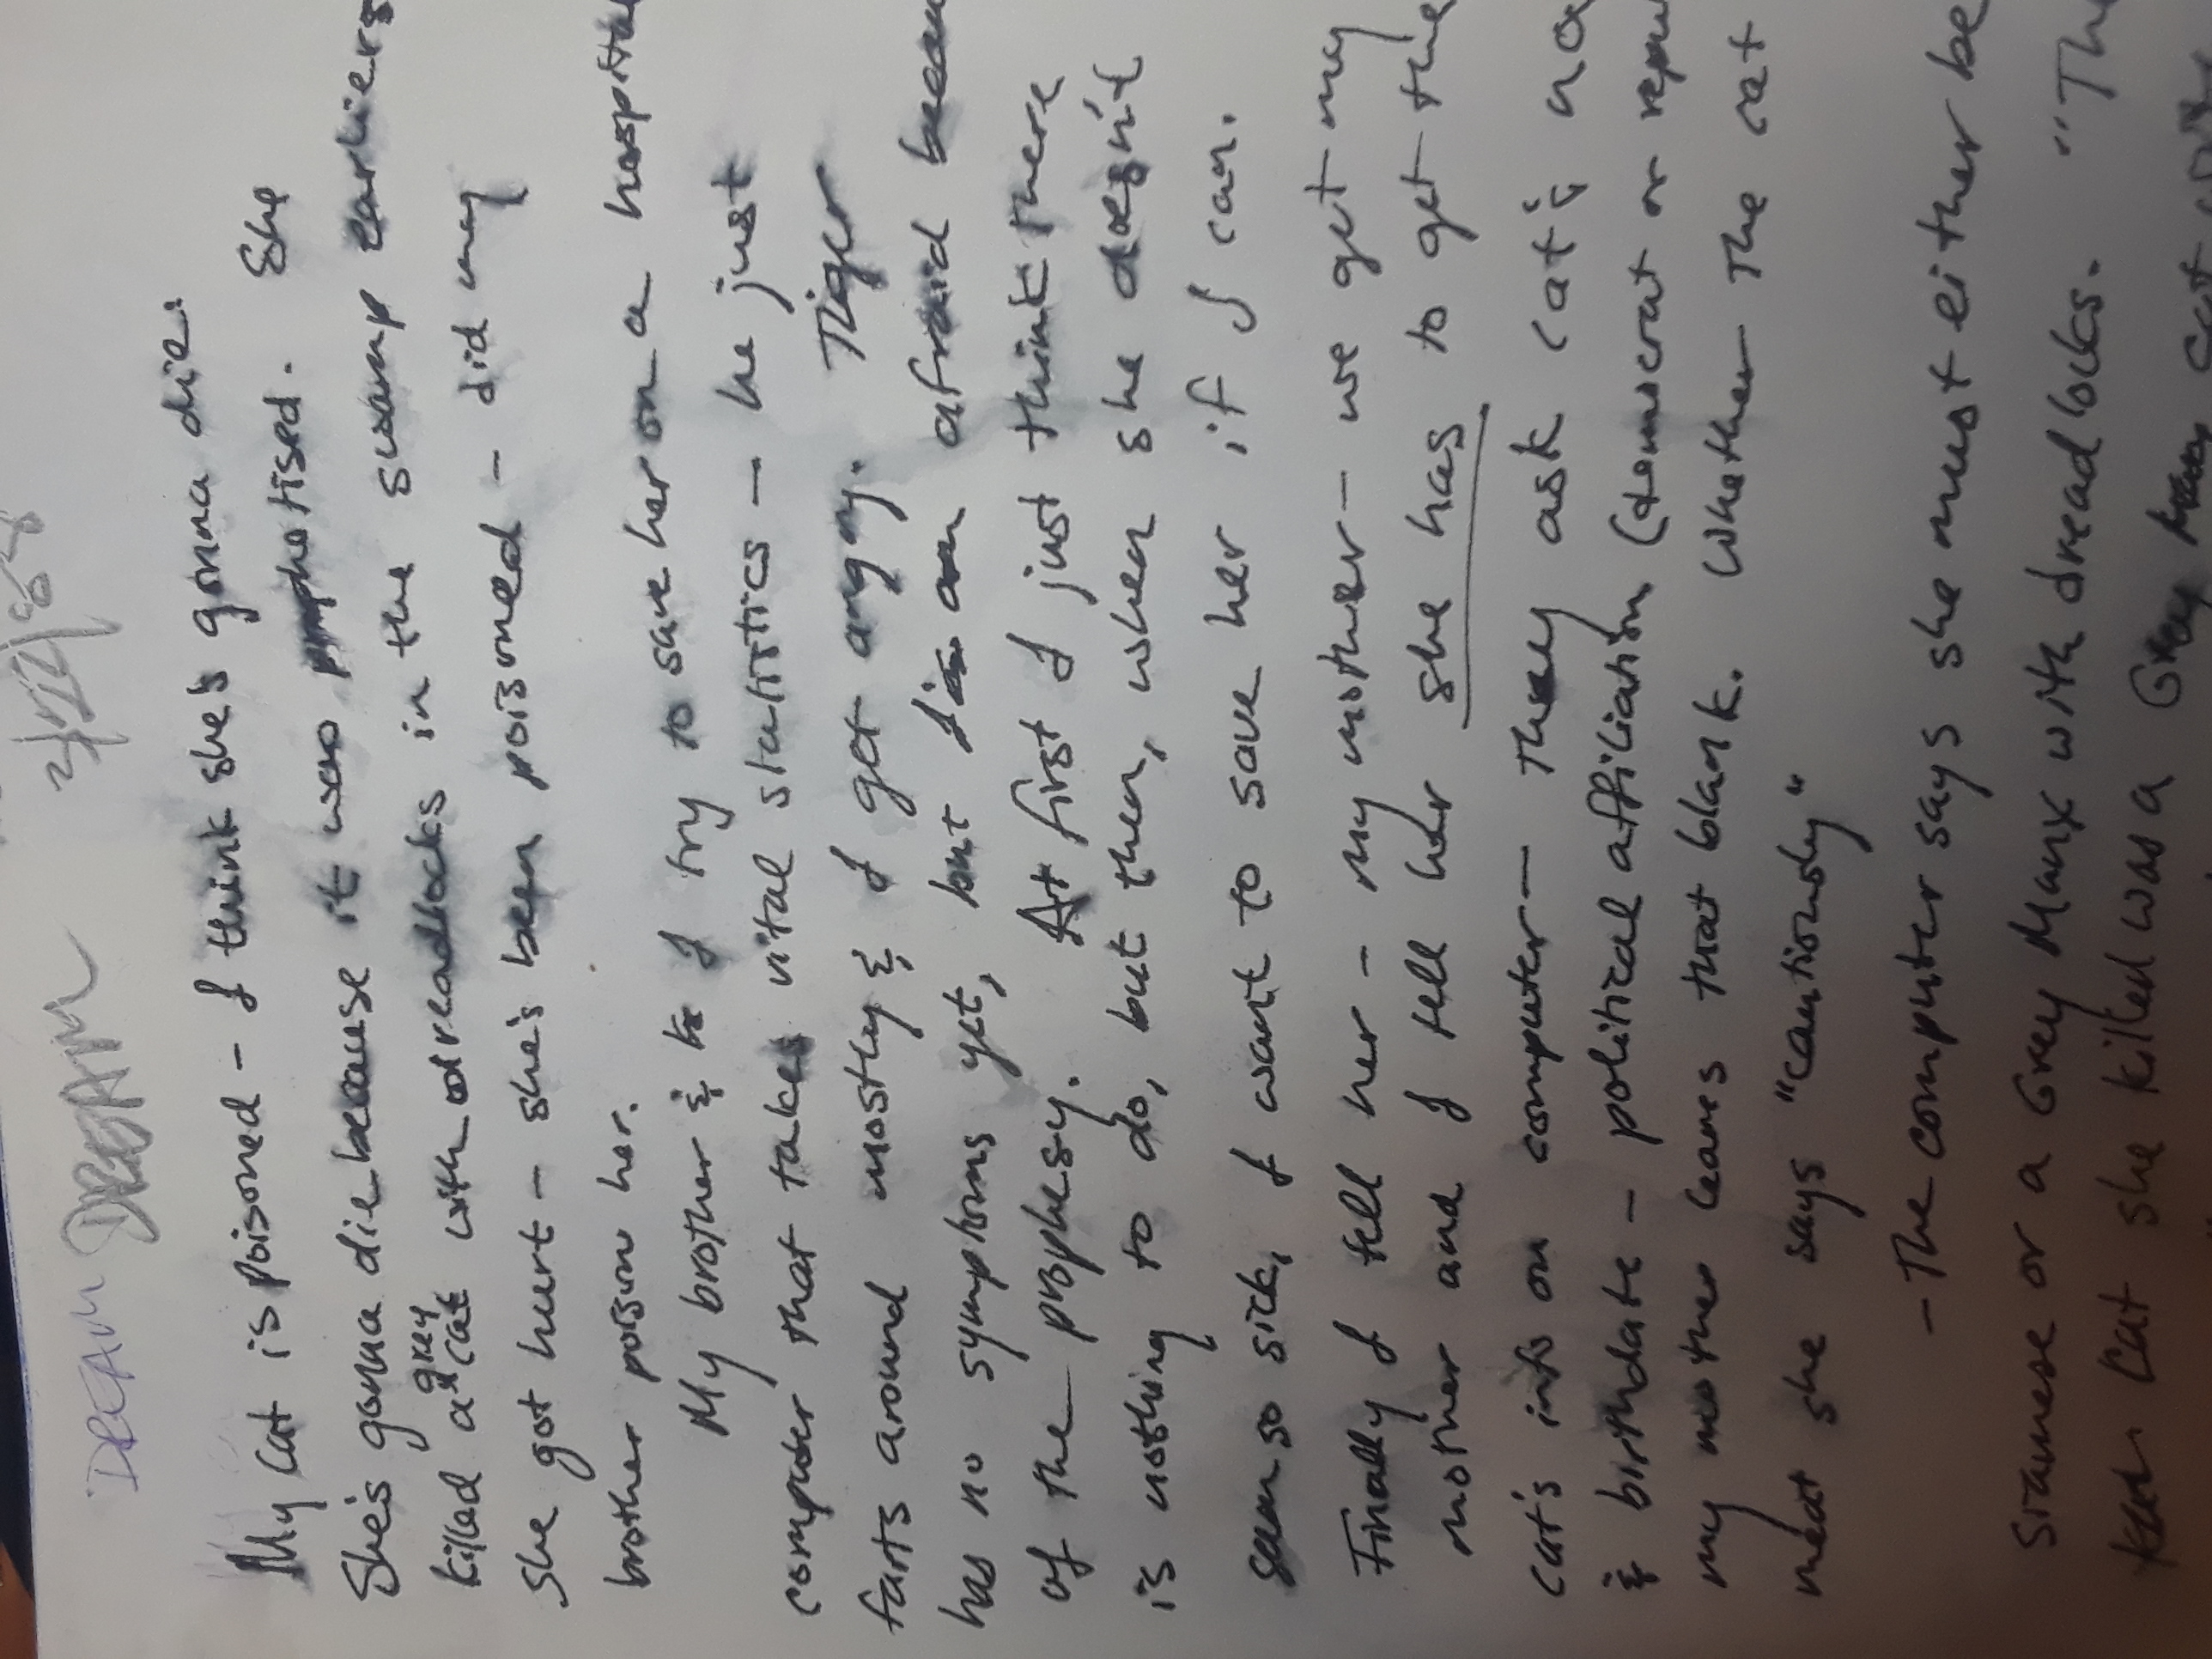 DREAM DREAM
My cat is poisoned - I think she's gonna die.
She's gonna die because it was prophetised. She
killed a grey cat with dreadlocks in the swamp earlier
she got hurt - she's been poisoned - did my
brother poison her.
My brother & I try to save her on a hospital
computer that takes vital statistics - he just
farts around mostly & I get angry. Tiger
has no symptoms yet, but I'm afraid
of the prophesy. At first I just think there
is nothing to do, but then, when she doesn't
seem so sick, I want to save her if I can.
Finally I tell her - my mother - we get my
mother and I tell her she has to get the
cat's info on computer - They ask cat's
& birthdate - political affiliation (democrat or
my mother leaves that blank. Whether the cat
she says "cautiously"
- The computer says she must either be
Siamese or a Grey Manx with dreadlocks. "The
cat she killed was a Grey